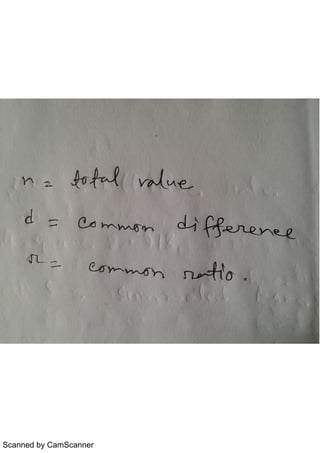 n = total value
d = common difference
r = common ratio.
Scanned by CamScanner